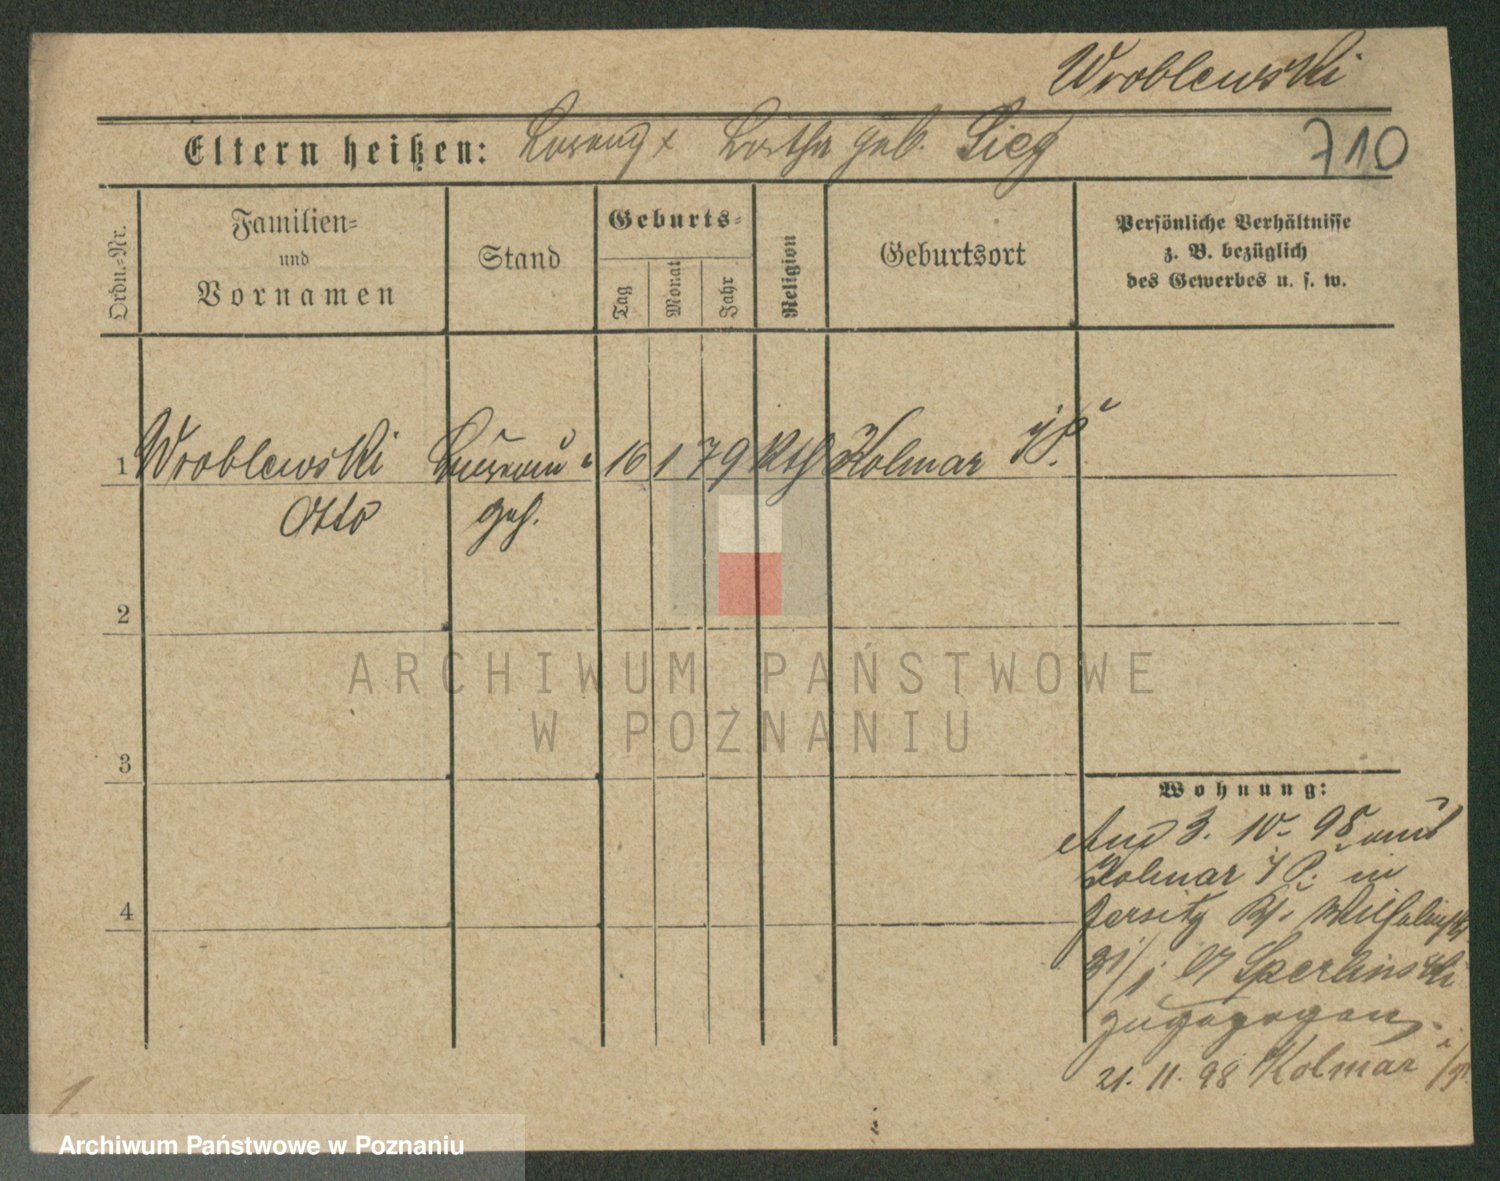 Wroblewski
Eltern heißen: Lorenz x Bertha geb. Sieg
710
Ordn.-Nr.
Familien-
und
Vornamen
Stand
Geburts-
Tag
Monat
Jahr
Religion
Geburtsort
Persönliche Verhältnisse
z. B. bezüglich
des Gewerbes u. s. w.
1 Wroblewski Bureau- 16 1 79 Kth Kolmar i/P.
Otto geh.
2
ARCHIWUM PAŃSTWOWE
W POZNANIU
3
Wohnung:
3. 10. 98 aus
Kolmar i/P. in
4
Jersitz
Sperlinski
zugezogen.
21. 11. 98 Kolmar i/P.
Archiwum Państwowe w Poznaniu